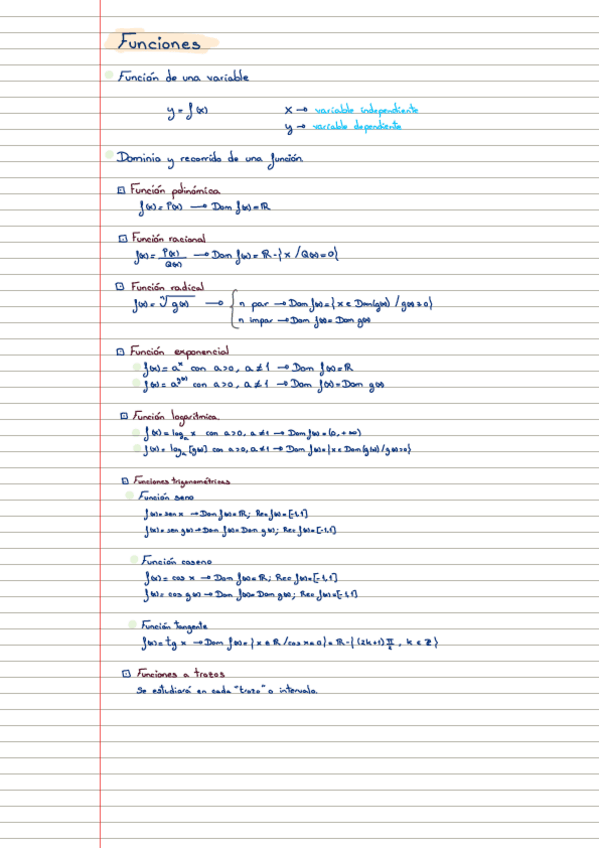 Funciones
Función de una variable
y = f(x) x → variable independiente
y → variable dependiente
Dominio y recorrido de una función
Función polinómica
f(x) = P(x) → Dom f(x) = ℝ
Función racional
f(x) = P(x)/Q(x) → Dom f(x) = ℝ - {x / Q(x) = 0}
Función radical
f(x) = ⁿ√g(x) → { n par → Dom f(x) = {x ∈ Dom(g(x)) / g(x) ≥ 0}
n impar → Dom f(x) = Dom g(x)
Función exponencial
f(x) = a^x con a>0, a≠1 → Dom f(x) = ℝ
f(x) = a^g(x) con a>0, a≠1 → Dom f(x) = Dom g(x)
Función logarítmica
f(x) = log_a x con a>0, a≠1 → Dom f(x) = (0, +∞)
f(x) = log_a [g(x)] con a>0, a≠1 → Dom f(x) = {x ∈ Dom(g(x)) / g(x)>0}
Funciones trigonométricas
Función seno
f(x) = sen x → Dom f(x) = ℝ; Rec f(x) = [-1,1]
f(x) = sen g(x) → Dom f(x) = Dom g(x); Rec f(x) = [-1,1]
Función coseno
f(x) = cos x → Dom f(x) = ℝ; Rec f(x) = [-1,1]
f(x) = cos g(x) → Dom f(x) = Dom g(x); Rec f(x) = [-1,1]
Función tangente
f(x) = tg x → Dom f(x) = {x ∈ ℝ / cos x ≠ 0} = ℝ - {(2k+1) π/2, k ∈ ℤ}
Funciones a trozos
Se estudiará en cada "trozo" o intervalo.